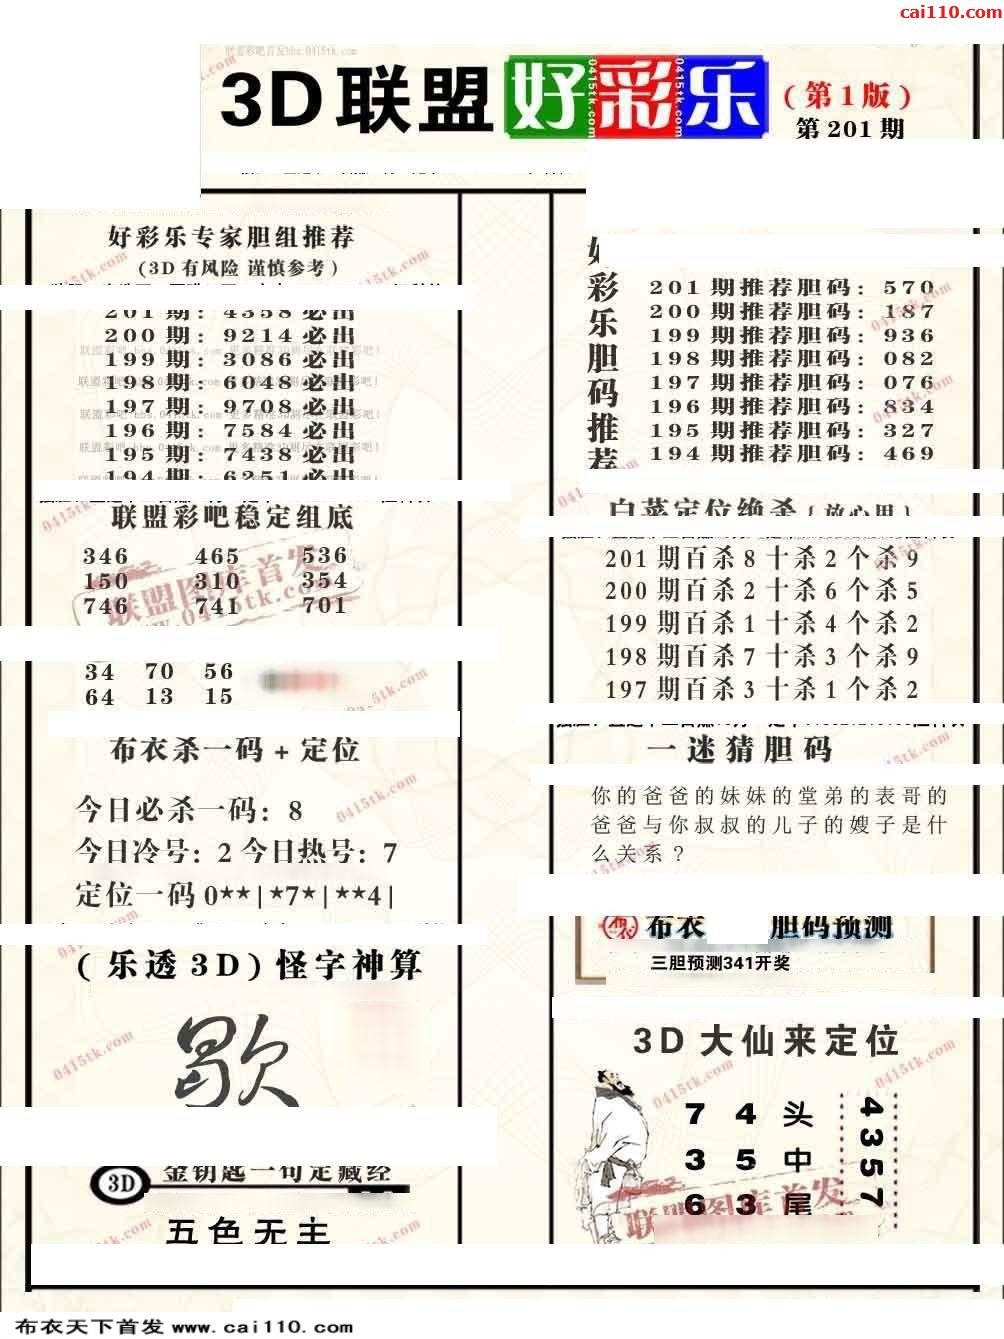 cai110.com
3D联盟好彩乐(第1版)
第201期
好彩乐专家胆组推荐
(3D有风险 谨慎参考)
201期:4358必出
200期:9214必出
199期:3086必出
198期:6048必出
197期:9708必出
196期:7584必出
195期:7438必出
194期:6251必出
联盟彩吧稳定组底
346 465 536
150 310 354
746 741 701
34 70 56
64 13 15
布衣杀一码+定位
今日必杀一码:8
今日冷号:2今日热号:7
定位一码0**|*7*|**4|
(乐透3D)怪字神算
歇
3D 金钥匙一句定藏经
五色无主
好彩乐胆码推荐
201期推荐胆码:570
200期推荐胆码:187
199期推荐胆码:936
198期推荐胆码:082
197期推荐胆码:076
196期推荐胆码:834
195期推荐胆码:327
194期推荐胆码:469
白菜定位绝杀{放心用}
201期百杀8十杀2个杀9
200期百杀2十杀6个杀5
199期百杀1十杀4个杀2
198期百杀7十杀3个杀9
197期百杀3十杀1个杀2
一迷猜胆码
你的爸爸的妹妹的堂弟的表哥的
爸爸与你叔叔的儿子的嫂子是什
么关系?
布衣 胆码预测
三胆预测341开奖
3D大仙来定位
7 4 头
3 5 中
6 3 尾
4357
联盟图库首发
www.0415tk.com
布衣天下首发 www.cai110.com